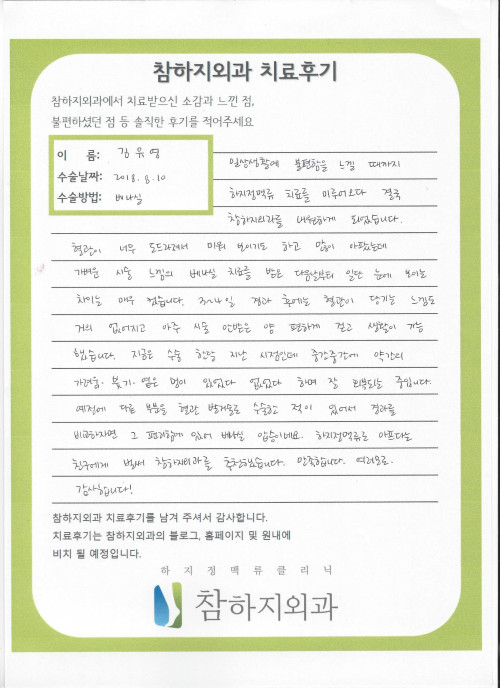 참하지외과 치료후기
참하지외과에서 치료받으신 소감과 느낀 점,
불편하셨던 점 등 솔직한 후기를 적어주세요
이 름: 김유영
수술날짜: 2018. 8. 10
수술방법: 베나실
일상생활에 불편함을 느낄 때까지
하지정맥류 치료를 미루어오다 결국
참하지외과를 내원하게 되었습니다.
혈관이 너무 도드라져서 미워 보이기도 하고 많이 아팠는데
가벼운 시술 느낌의 베나실 치료를 받은 다음날부터 일단 눈에 보이는
차이는 매우 컸습니다. 3~4일 경과 후에는 혈관이 당기는 느낌도
거의 없어지고 아주 시술 안받은 양 편하게 걷고 생활이 가능
했습니다. 지금은 수술 한달 지난 시점인데 중간중간에 약간의
가려움·붓기·옅은 멍이 있었다 없었다 하며 잘 회복되는 중입니다.
예전에 다른 부분을 혈관 발거술로 수술한 적이 있어서 결과를
비교하자면 그 편리함에 있어 베나실 압승이네요. 하지정맥류로 아프다는
친구에게 벌써 참하지외과를 추천했습니다. 만족합니다. 여러모로.
감사합니다!
참하지외과 치료후기를 남겨 주셔서 감사합니다.
치료후기는 참하지외과의 블로그, 홈페이지 및 원내에
비치 될 예정입니다.
하지정맥류클리닉
참하지외과